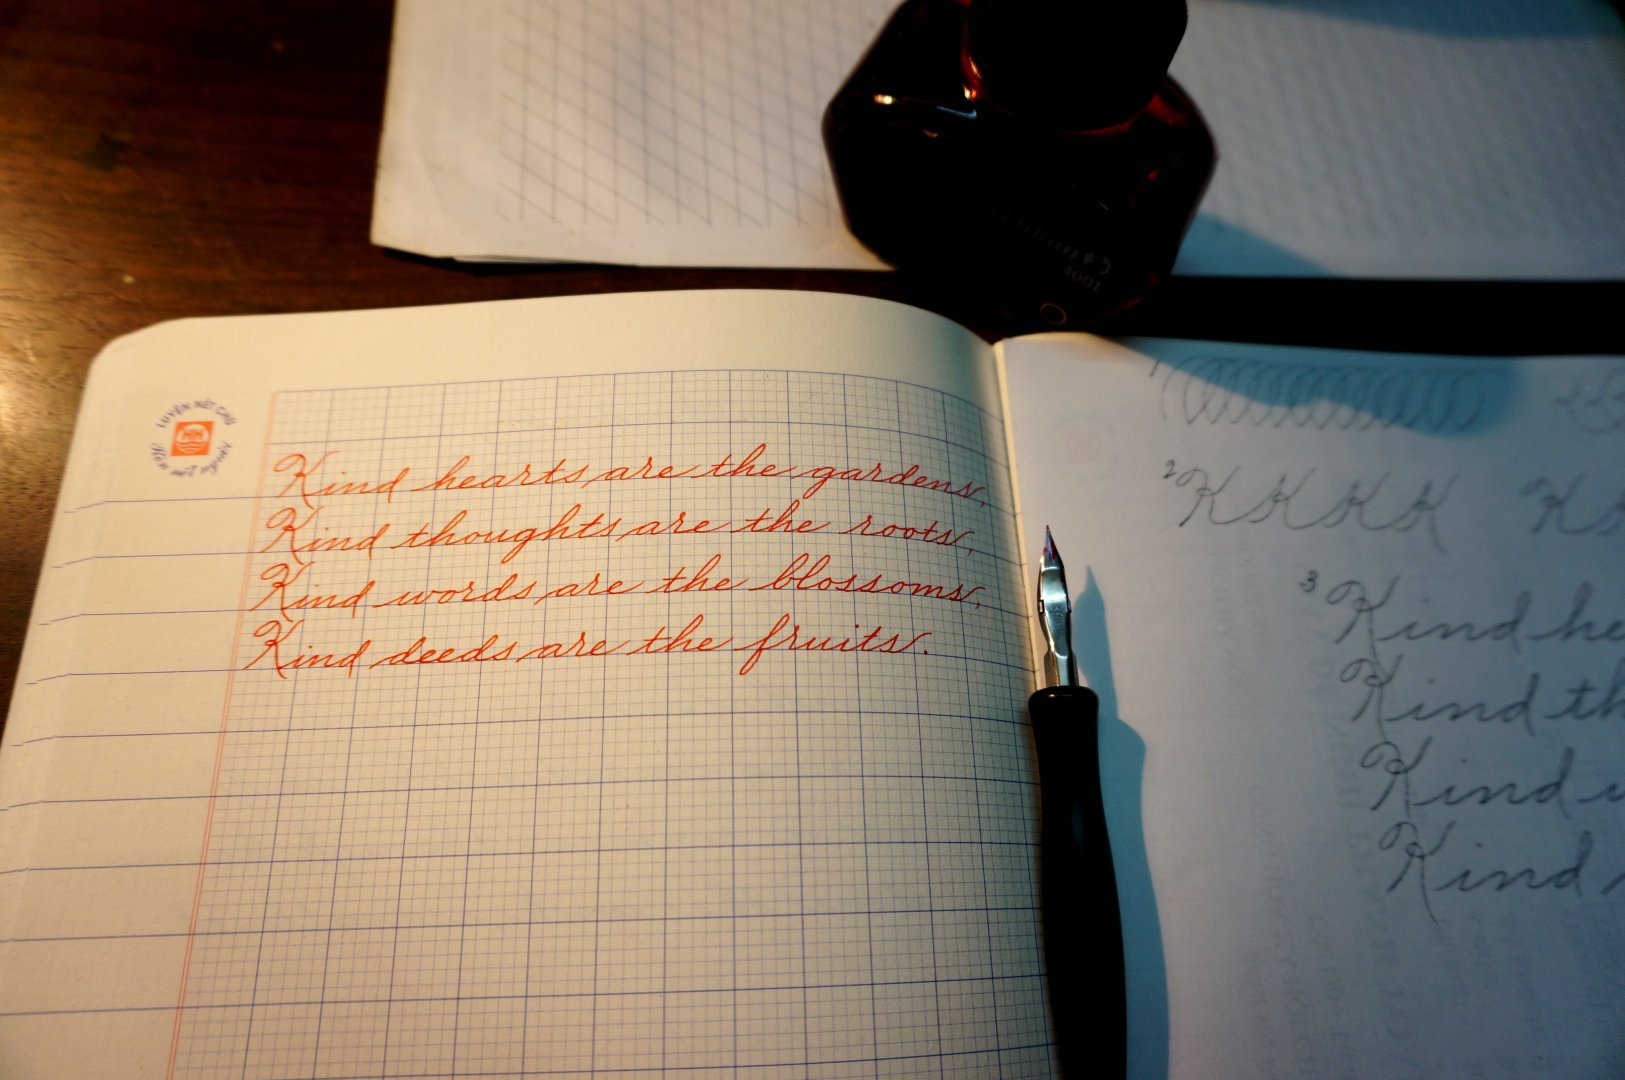 4001
LUYỆN NÉT CHỮ
Rèn nết người
Kind hearts are the gardens,
Kind thoughts are the roots,
Kind words are the blossoms,
Kind deeds are the fruits.
1
2 K K K K K
3 Kind he
Kind th
Kind
Kind